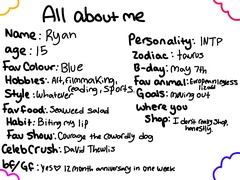 All about me
Name: Ryan
age: 15
Fav Colour: Blue
Hobbies: Art, Filmmaking, reading, sports
Style: Whatever
Fav food: Seaweed salad
Habit: Biting my lip
Fav Show: Courage the cowardly dog
Celeb Crush: David Thewlis
bf/gf: yes ♡ 12 month anniversary in one week
Personality: INTP
Zodiac: taurus
B-day: May 7th
Fav animal: European legless lizard
Goals: moving out
Where you
Shop: I don't crazy shop, honestly.